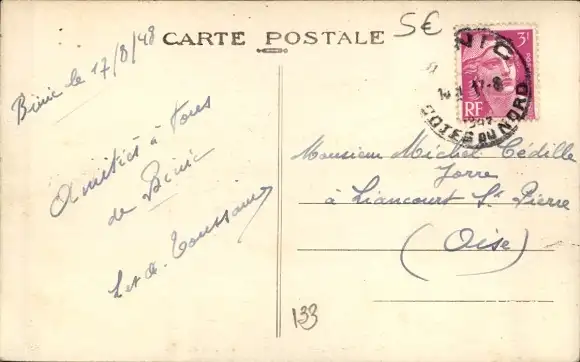 CARTE POSTALE
5€
Binic le 17/8/48
Amitiés à tous
de Binic
L et A. Toussaint
3F
RF
NIC
17-8
COTES DU NORD
Monsieur Michel Cédille
Jorre
à Liancourt St Pierre
(Oise)
133